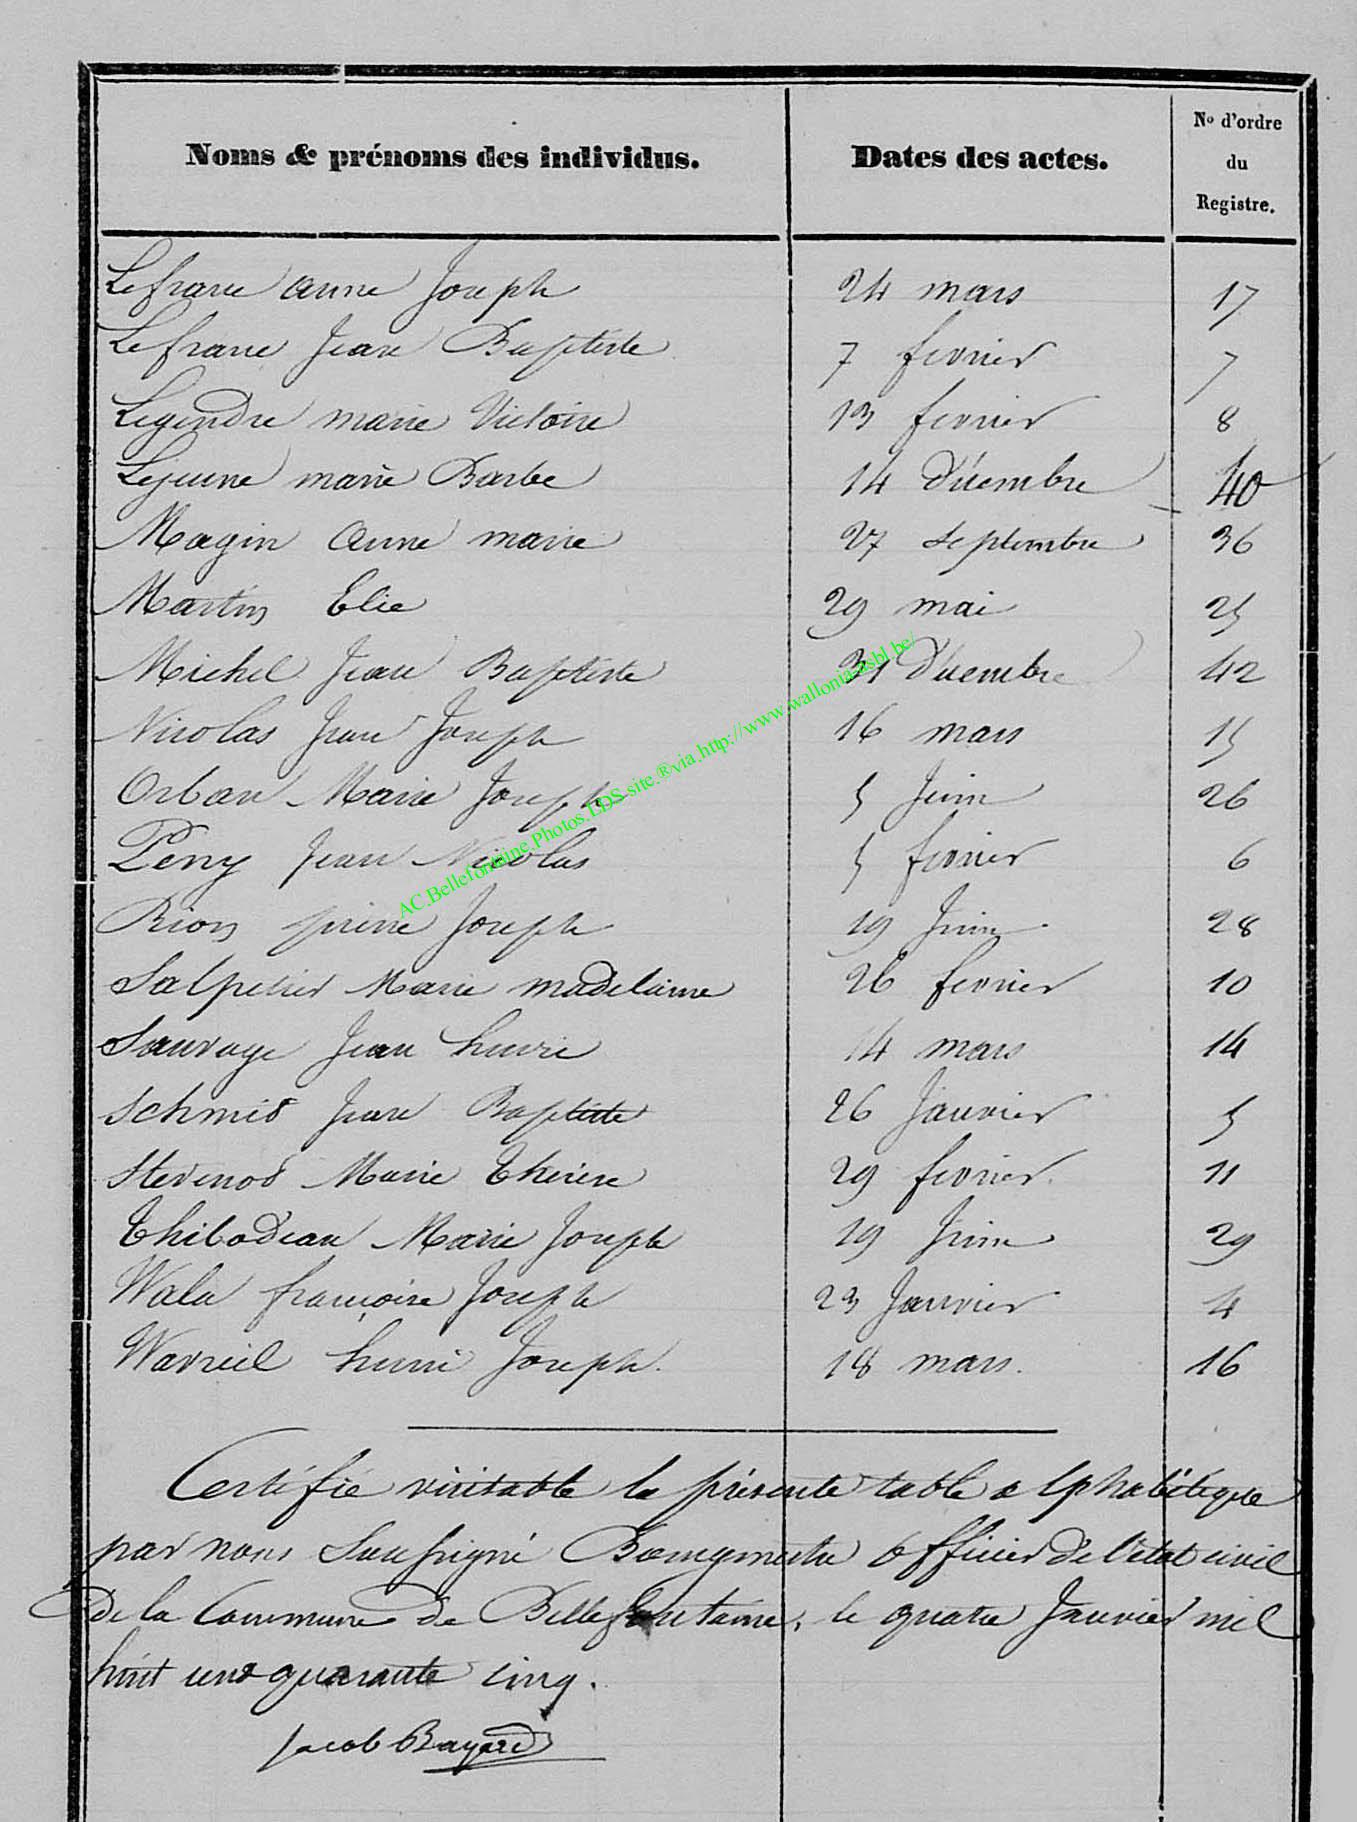 Noms & prénoms des individus. Dates des actes. No d'ordre du Registre.
Lefranc anne Joseph 24 mars 17
Lefranc Jean Baptiste 7 fevrier 7
Legendre marie Victoire 13 fevrier 8
Lejeune marie Barbe 14 Décembre 40
Magin anne marie 27 Septembre 36
Martin Elie 29 mai 25
Michel Jean Baptiste 31 Décembre 42
Nicolas Jean Joseph 16 mars 15
Orban Marie Joseph 5 Juin 26
Perry Jean Nicolas 5 fevrier 6
Rion pierre Joseph 19 Juin 28
Salpetier Marie madelaine 26 fevrier 10
Sauvage Jean henri 14 mars 14
Schmid Jean Baptiste 26 Janvier 5
Stevenod Marie thérèse 29 fevrier. 11
Thibodeau Marie Joseph 19 Juin 29
françoise Joseph 23 Janvier 4
Wavreil henri Joseph. 18 mars. 16
Certifié véritable la présente table alphabétique
par nous Soussigné Bourgmestre officier de l'état civil
de la Commune de Bellefontaine, le quatre Janvier mil
huit cent quarante cinq.
Jacob Bayard
AC.Bellefontaine.Photos.LDS-site.®via.http://www.wallonia-asbl.be/